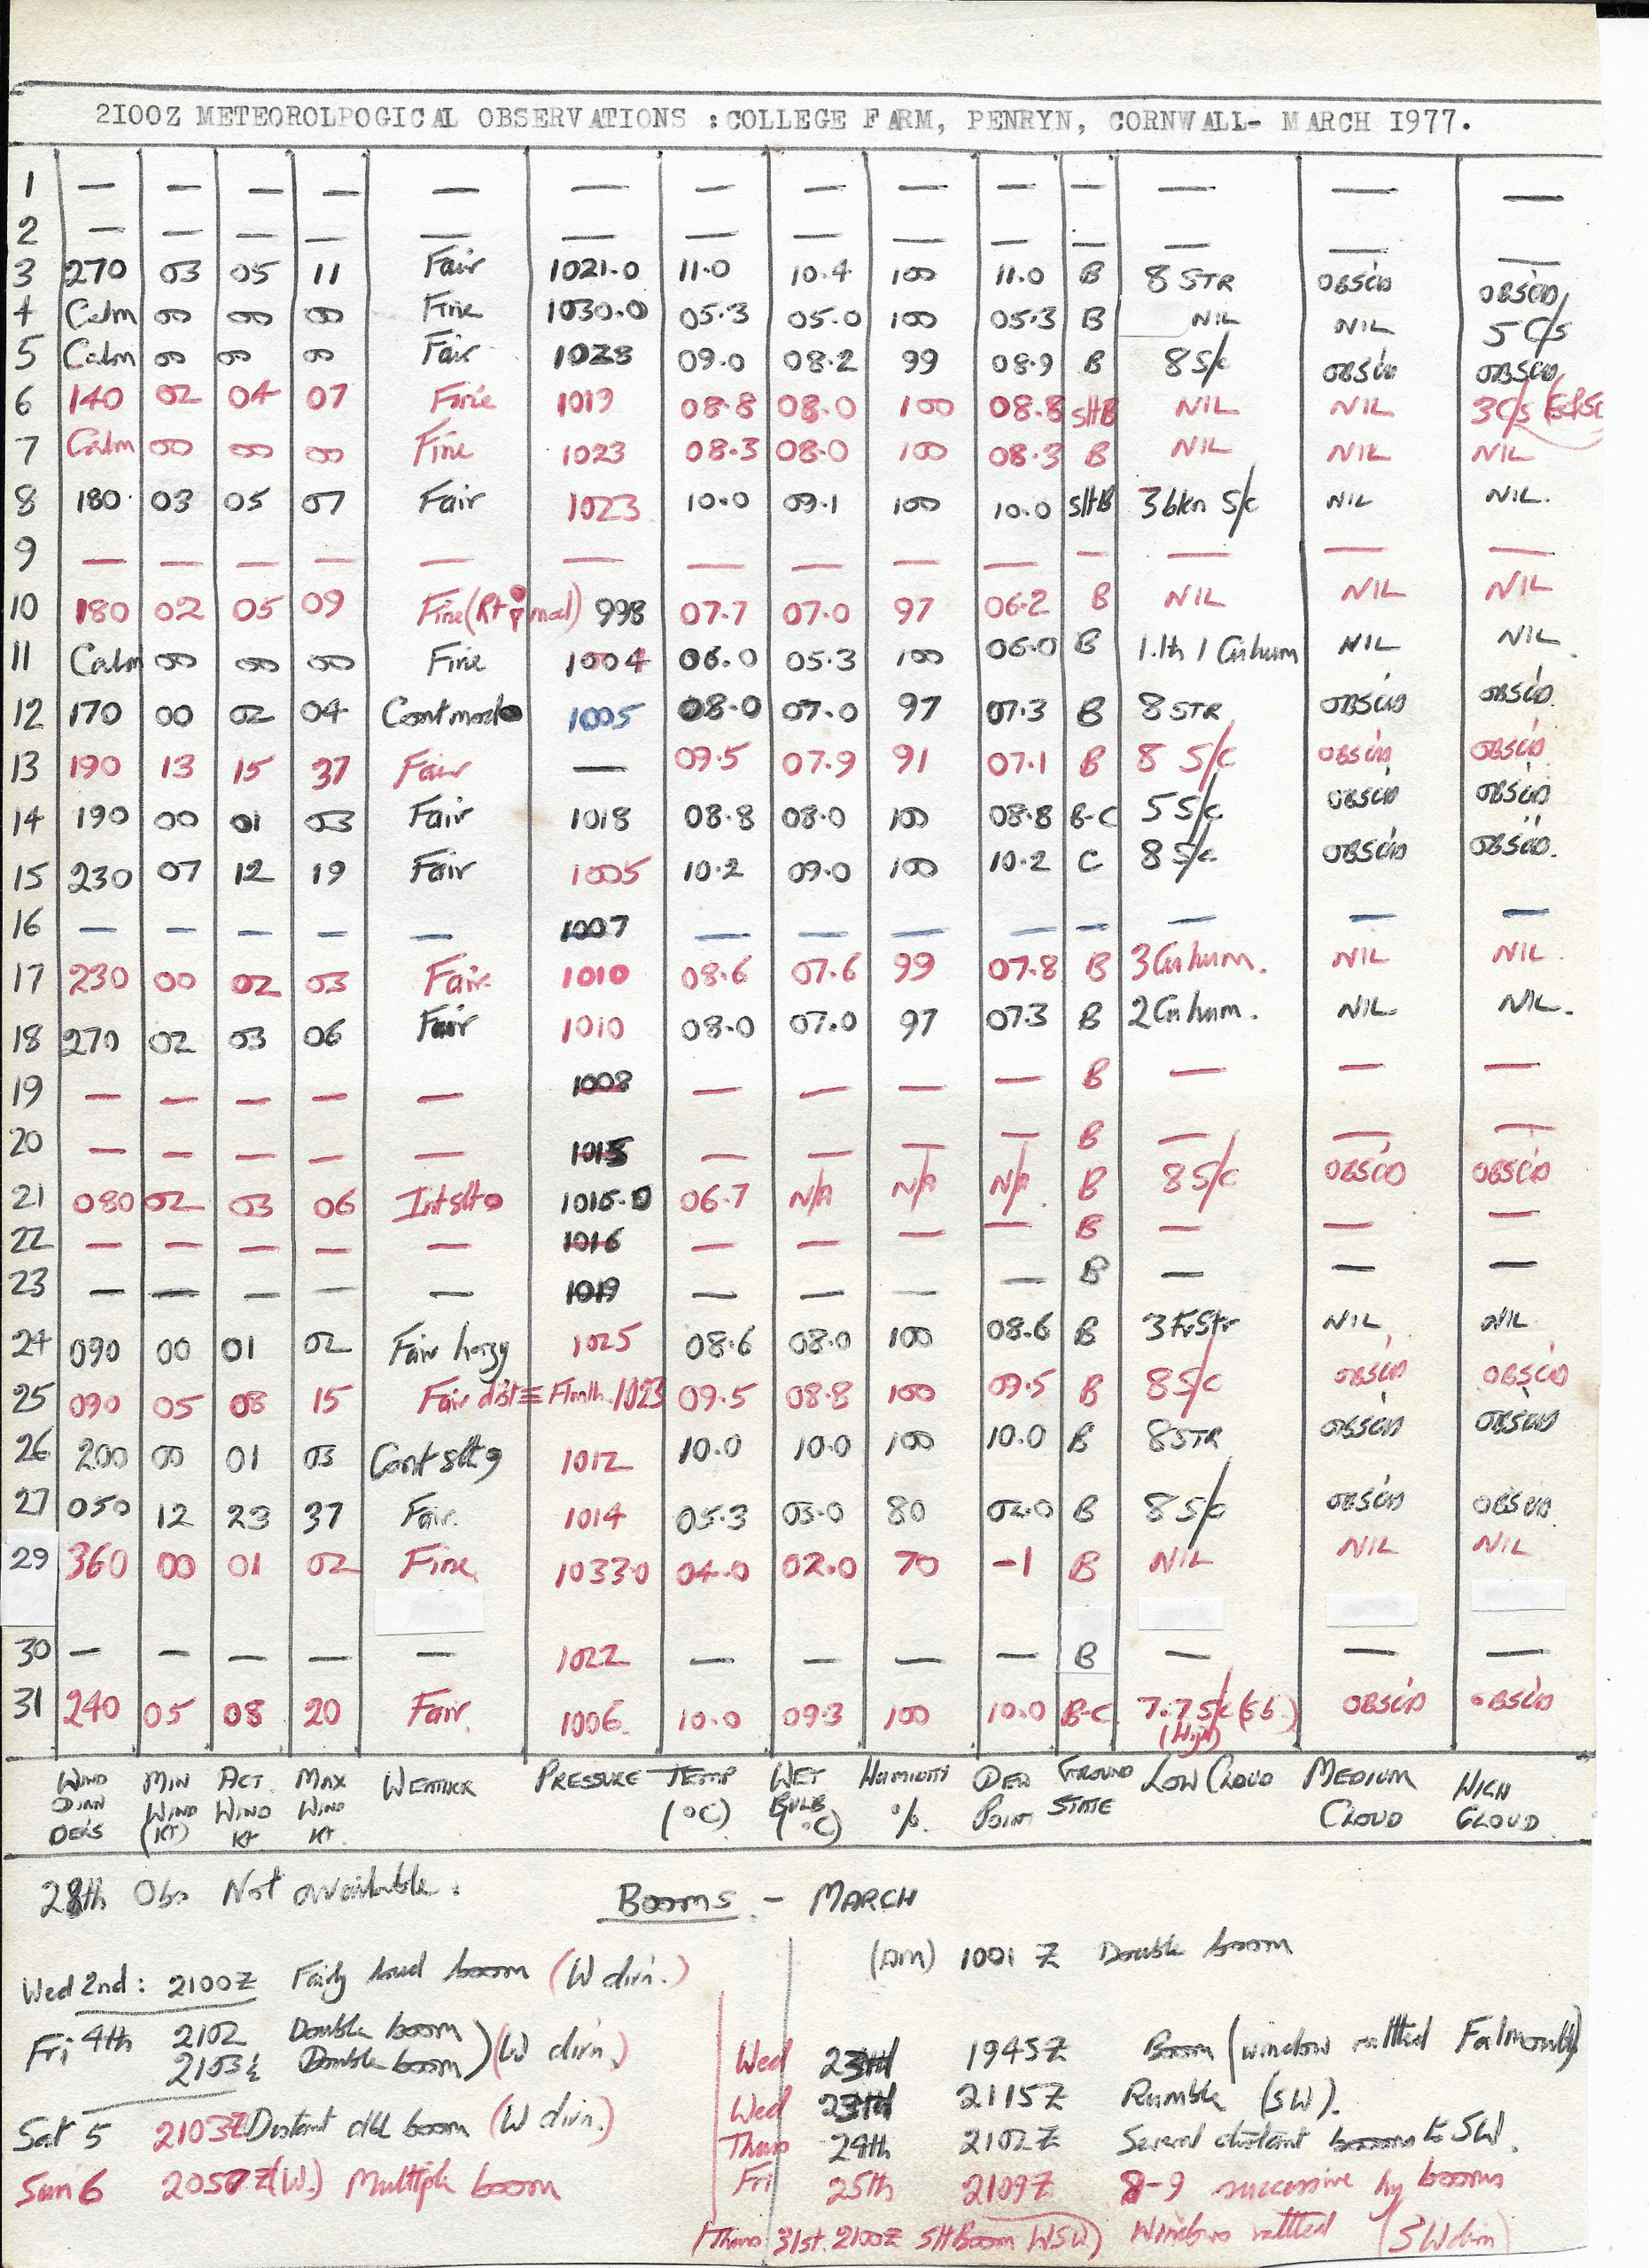 2I00Z METEOROLPOGICAL OBSERVATIONS :COLLEGE FARM, PENRYN, CORNWALL- MARCH I977.
1 — — — — — — — — — — — — — —
2 — — — — — — — — — — — — — —
3 270 03 05 11 Fair 1021.0 11.0 10.4 100 11.0 B 8 STR OBSC'D OBSC'D
4 Calm 00 00 00 Fine 1030.0 05.3 05.0 100 05.3 B NIL NIL 5 C/s
5 Calm 00 00 00 Fair 1028 09.0 08.2 99 08.9 B 8 S/c OBSC'D OBSC'D
6 140 02 04 07 Fine 1019 08.8 08.0 100 08.8 SltB NIL NIL 3 C/s
7 Calm 00 00 00 Fine 1023 08.3 08.0 100 08.3 B NIL NIL NIL
8 180 03 05 07 Fair 1023 10.0 09.1 100 10.0 SltB 3 bkn S/c NIL NIL.
9 — — — — — — — — — — — — — —
10 180 02 05 09 Fine (Rt mod) 998 07.7 07.0 97 06.2 B NIL NIL NIL
11 Calm 00 00 00 Fine 1004 06.0 05.3 100 06.0 B 1.1th 1 Cu hum NIL NIL
12 170 00 02 04 Cont mod 1005 08.0 07.0 97 07.3 B 8 STR OBSC'D OBSC'D.
13 190 13 15 37 Fair — 09.5 07.9 91 07.1 B 8 S/C OBSC'D OBSC'D
14 190 00 01 03 Fair 1018 08.8 08.0 100 08.8 B-C 5 S/c. OBSC'D OBSC'D
15 230 07 12 19 Fair 1005 10.2 09.0 100 10.2 C 8 S/c. OBSC'D OBSC'D.
16 — — — — — 1007 — — — — — — — —
17 230 00 02 03 Fair 1010 08.6 07.6 99 07.8 B 3 Cu hum. NIL NIL.
18 270 02 03 06 Fair 1010 08.0 07.0 97 07.3 B 2 Cu hum. NIL. NIL.
19 — — — — — 1008 — — — — B — — —
20 — — — — — 1015 — — — — B — — —
21 080 02 03 06 Int slt 1015.0 06.7 N/A N/A N/A B 8 S/C OBSC'D OBSC'D
22 — — — — — 1016 — — — — B — — —
23 — — — — — 1019 — — — — B — — —
24 090 00 01 02 Fair hazy 1025 08.6 08.0 100 08.6 B 3 FrStr NIL NIL
25 090 05 08 15 Fair dist ≡ Flmth. 1023 09.5 08.8 100 09.5 B 8 S/C OBSC'D OBSC'D
26 200 00 01 03 Cont slt 1012 10.0 10.0 100 10.0 B 8 STR OBSC'D OBSC'D
27 050 12 23 37 Fair. 1014 05.3 03.0 80 02.0 B 8 S/c OBSC'D OBSC'D.
29 360 00 01 02 Fine 1033.0 04.0 02.0 70 -1 B NIL NIL NIL
30 — — — — — 1022 — — — — B — — —
31 240 05 08 20 Fair. 1006. 10.0 09.3 100 10.0 B-C 7.7 S/c OBSC'D OBSC'D
(High)
WIND MIN ACT. MAX WEATHER PRESSURE TEMP WET HUMIDITY DEW GROUND LOW CLOUD MEDIUM HIGH
DIRN WIND WIND WIND (°C) BULB % POINT STATE CLOUD CLOUD
DEGS (KT) KT KT. (°C)
28th Obs Not available.
BOOMS - MARCH
Wed 2nd: 2100Z Fairly loud boom (W dirn.)
Fri 4th 2102 Double boom
2103½ Double boom) (W dirn.)
Sat 5 2103Z Distant dbl boom (W dirn.)
Sun 6 2057Z (W.) Multiple boom
(AM) 1001 Z Double boom
Wed 23rd 1945Z Boom (window rattled Falmouth)
Wed 23rd 2115Z Rumble (SW).
Thurs 24th 2102Z Several distant booms to SW.
Fri 25th 2109Z 8-9 successive hy booms
Windows rattled (SW dirn)
(Thurs 31st. 2100Z Slt Boom WSW)